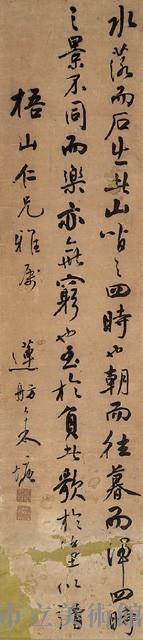 水落而石出者山間之四時也朝而往暮而歸四時
之景不同而樂亦無窮也至於負者歌於塗行者
梧山仁兄雅屬 蓮舫
市立美術館